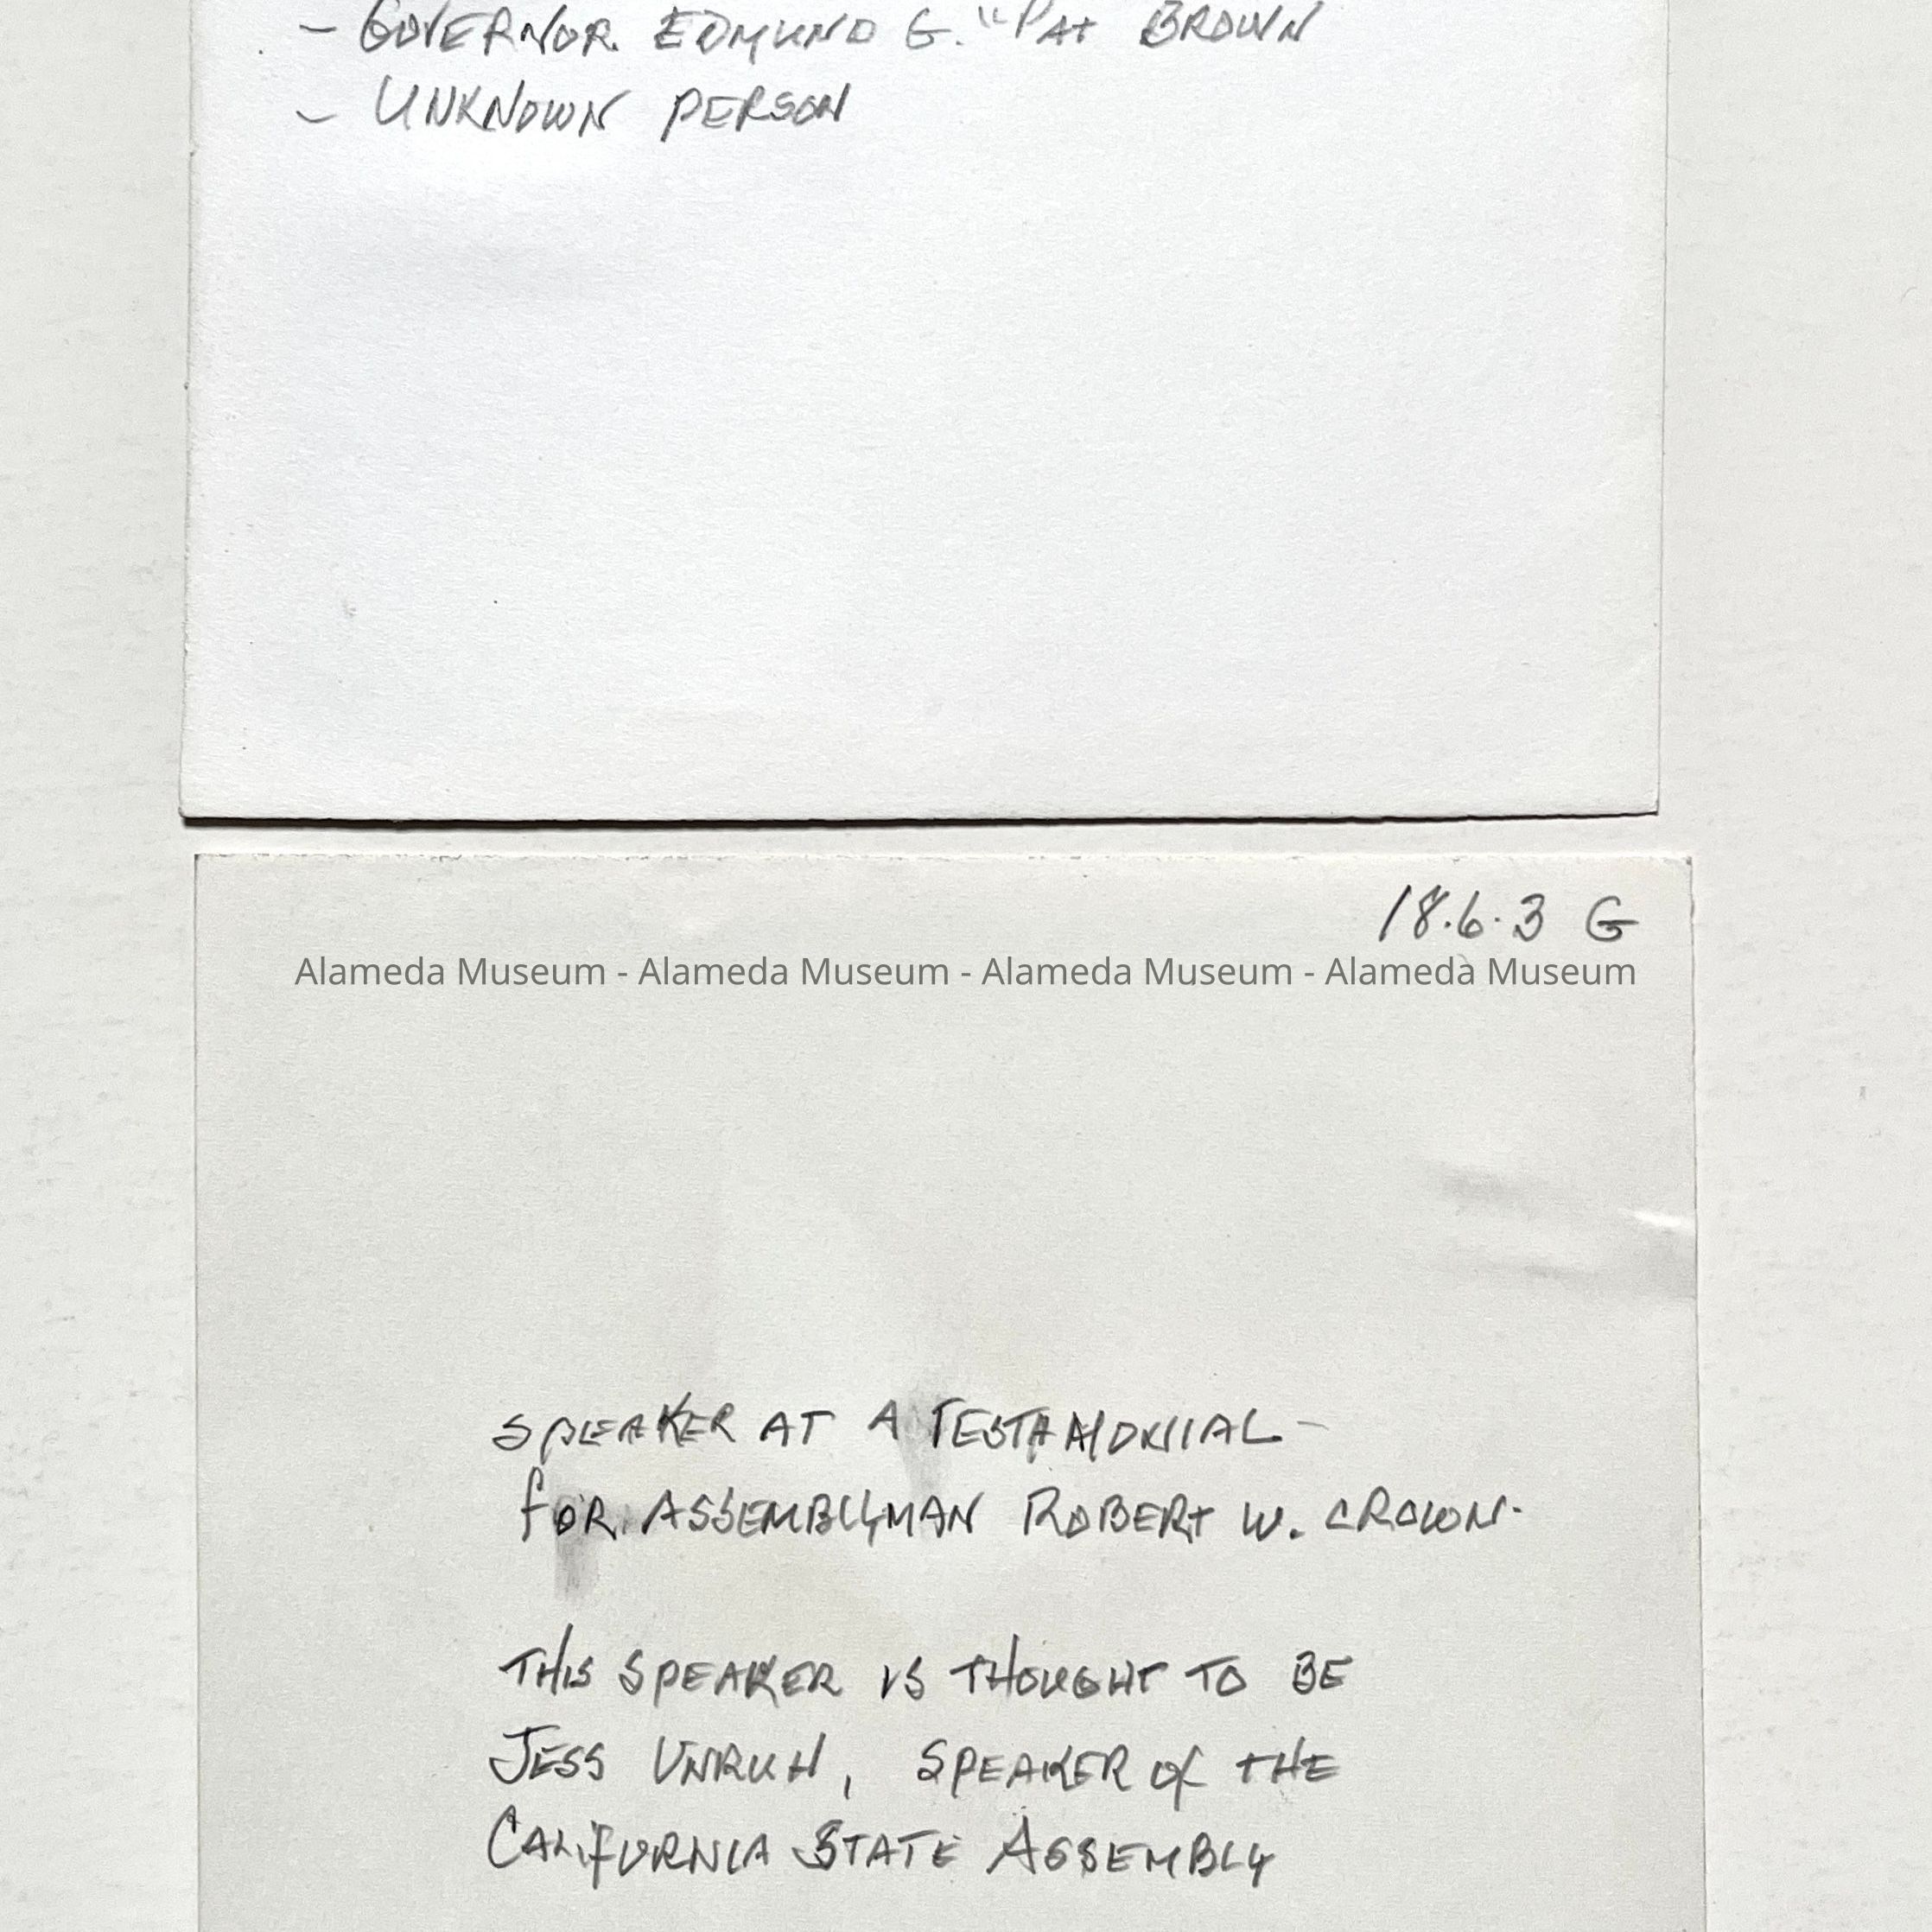 - GOVERNOR EDMUND G. "PAT BROWN
- UNKNOWN PERSON
18.6.3 G
Alameda Museum - Alameda Museum - Alameda Museum - Alameda Museum
SPEAKER AT A TESTAMONIAL -
FOR ASSEMBLYMAN ROBERT W. CROWN.
THIS SPEAKER IS THOUGHT TO BE
JESS UNRUH, SPEAKER OF THE
CALIFORNIA STATE ASSEMBLY